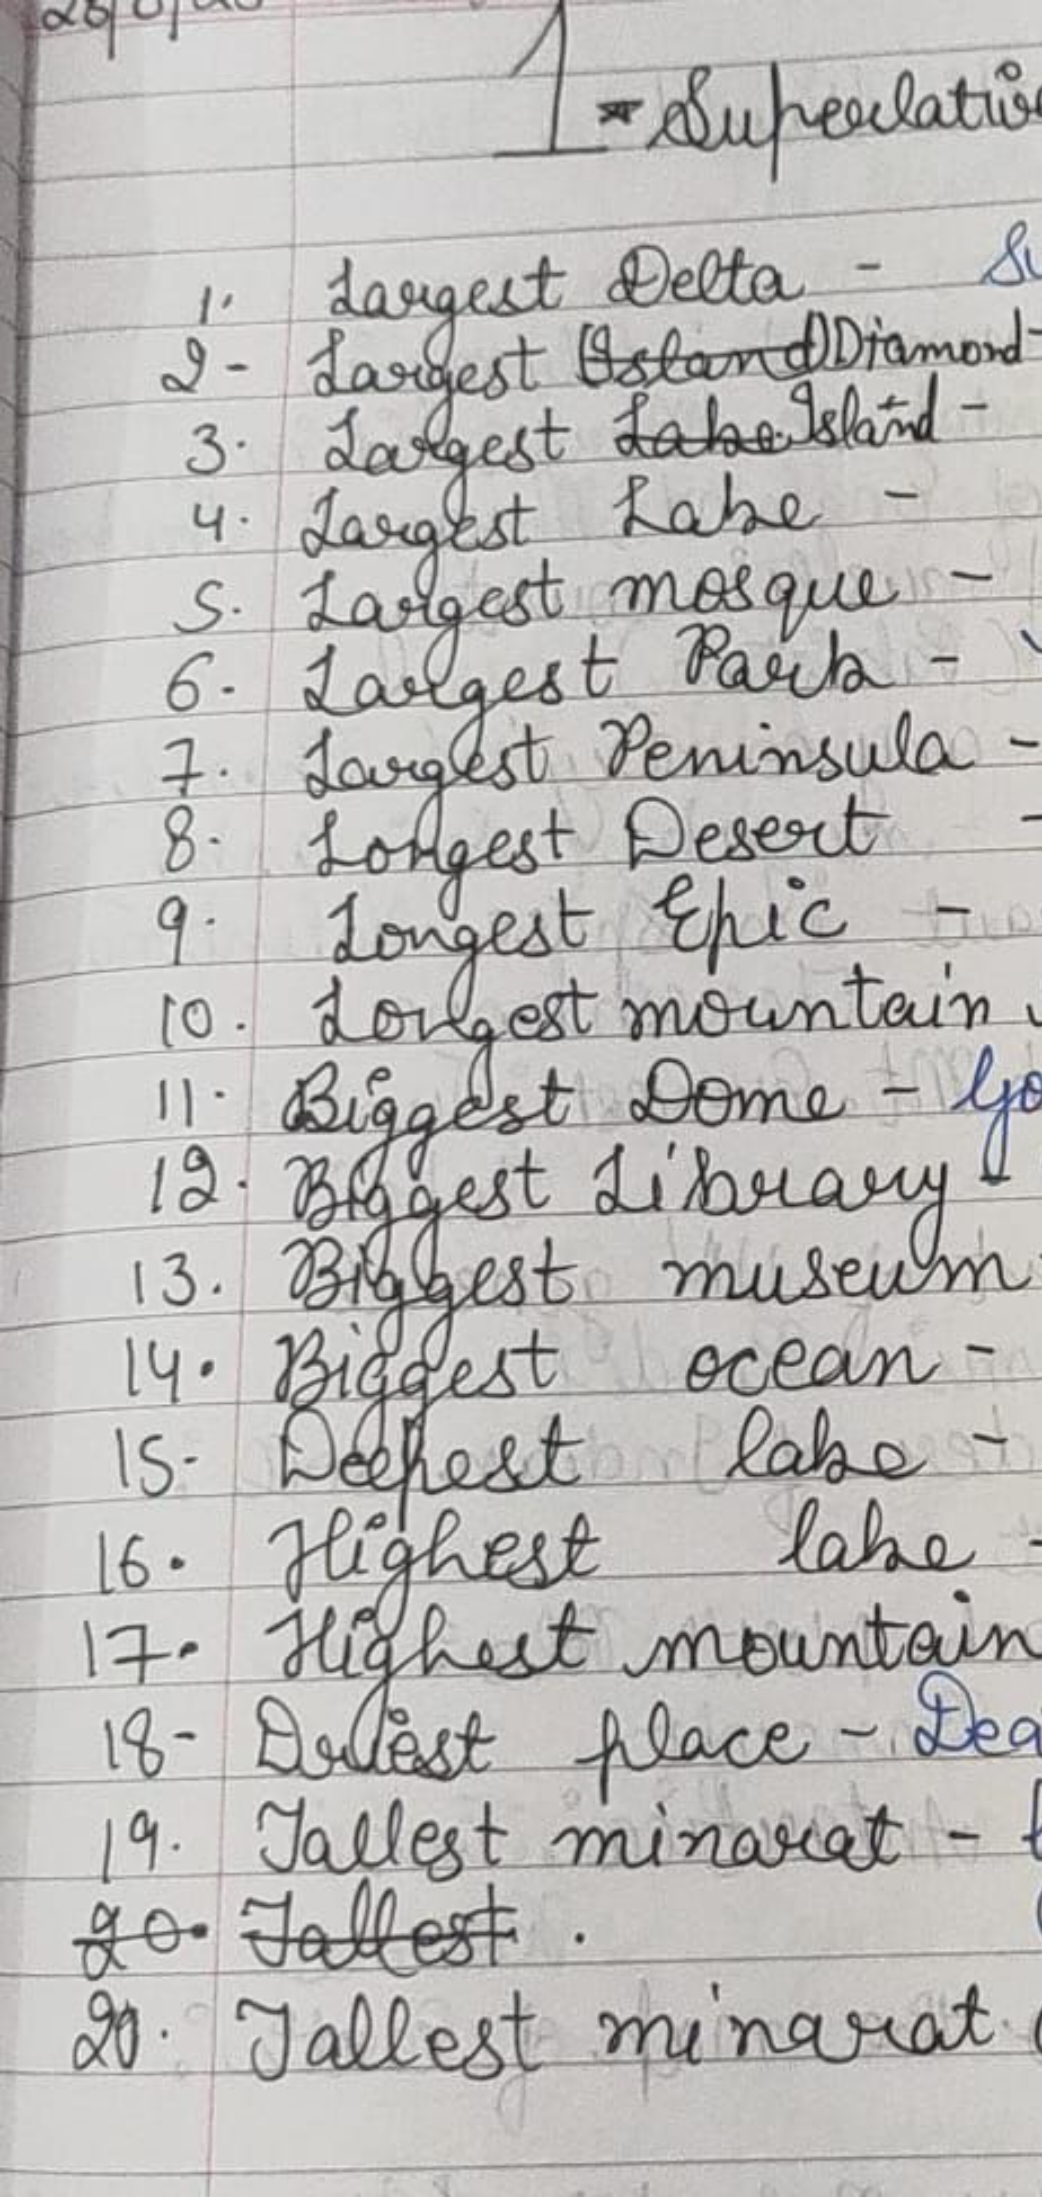 1 - Superlativ
1. Largest Delta - Su
2- Largest (Island) Diamond -
3. Largest Lake Island -
4. Largest Lake -
5. Largest mosque -
6. Largest Park -
7. Largest Peninsula -
8. Longest Desert -
9. Longest Epic -
10. Longest mountain
11. Biggest Dome - Go
12. Biggest Library -
13. Biggest museum
14. Biggest ocean -
15- Deepest lake -
16. Highest lake -
17. Highest mountain
18- Driest place - Dea
19. Tallest minarat -
20. Tallest .
20. Tallest minarat (